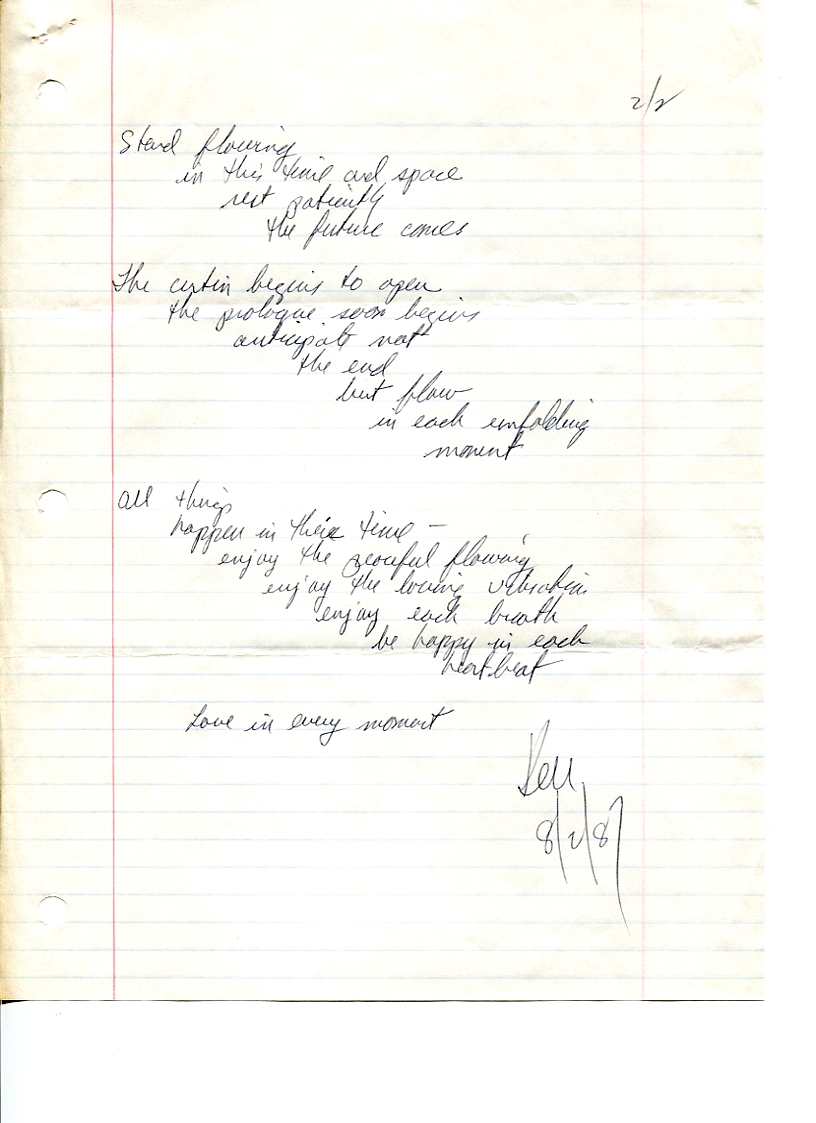 2/2
Stand flowing
in this time and space
rest patiently
the future comes
The curtin begins to open
the prologue soon begins
anticipate not
the end
but flow
in each unfolding
moment
all things
happen in their time —
enjoy the peaceful flowing
enjoy the loving vibration
enjoy each breath
be happy in each
heartbeat
Love in every moment
8/2/87